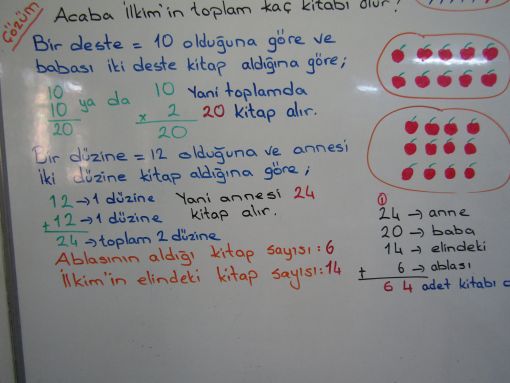 Çözüm
Acaba İlkim'in toplam kaç kitabı olur?
Bir deste = 10 olduğuna göre ve
babası iki deste kitap aldığına göre;
10
10
20
ya da
10
x 2
20
Yani toplamda
20 kitap alır.
Bir düzine = 12 olduğuna ve annesi
iki düzine kitap aldığına göre;
12 → 1 düzine
+ 12 → 1 düzine
24 → toplam 2 düzine
Yani annesi 24
kitap alır.
Ablasının aldığı kitap sayısı : 6
İlkim'in elindeki kitap sayısı : 14
1
24 → anne
20 → baba
14 → elindeki
+ 6 → ablası
6 4 adet kitabı